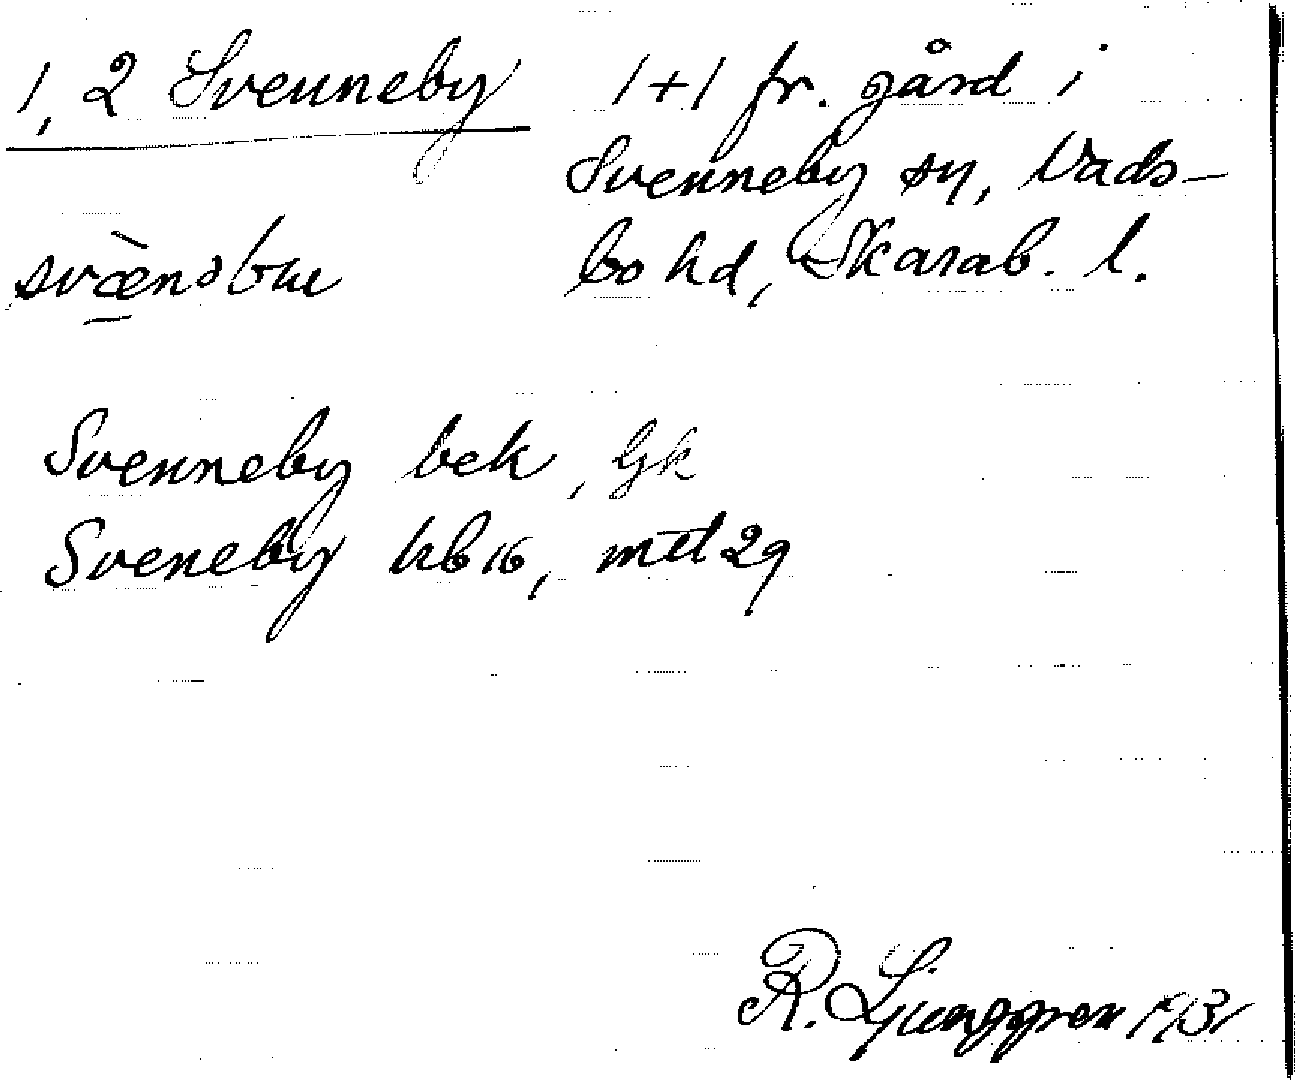 1, 2 Svenneby
1+1 fr. gård i
Svenneby sn, Vads-
bo hd, Skarab. l.
Svenneby bek, Gk
Sveneby kb 16, mtl 29
R. Ljunggren 1931